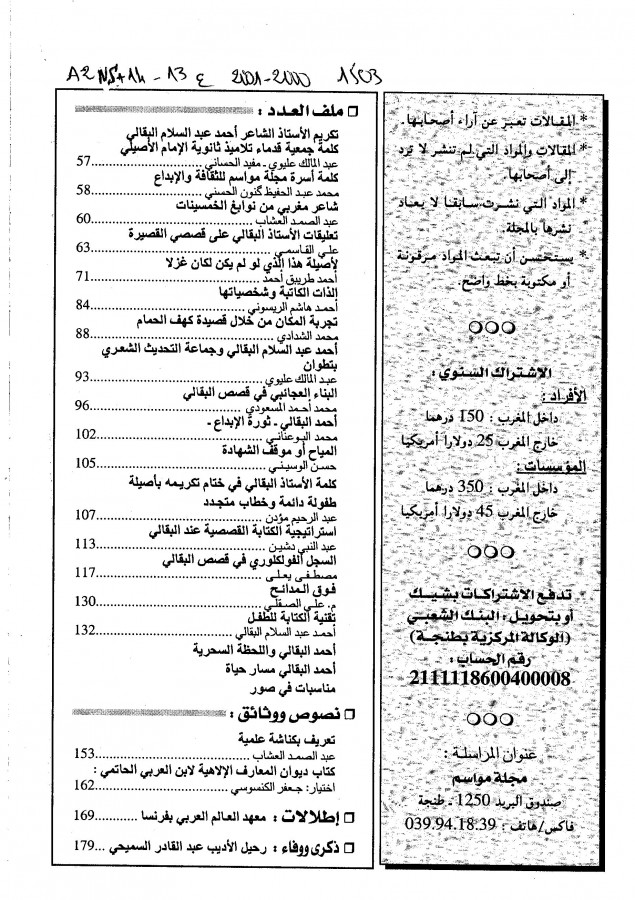 A2 - 13 ع 2001-2000 1503
* المقالات تعبر عن آراء أصحابها.
* المقالات والمواد التي لم تنشر لا ترد
إلى أصحابها.
* المواد التي نشرت سابقا لا يعاد
نشرها بالمجلة.
* يستحسن أن تبعث المواد مرقونة
أو مكتوبة بخط واضح.
الاشتراك السنوي :
الأفراد :
داخل المغرب : 150 درهما
خارج المغرب 25 دولارا أمريكيا
المؤسسات :
داخل المغرب : 350 درهما
خارج المغرب 45 دولارا أمريكيا
تدفع الاشتراكات بشيك
أو بتحويل : البنك الشعبي
(الوكالة المركزية بطنجة)
رقم الحساب :
2111118600400008
عنوان المراسلة :
مجلة مواسم
صندوق البريد 1250 - طنجة
فاكس/هاتف : 039.94.18.39
ملف العدد :
تكريم الأستاذ الشاعر أحمد عبد السلام البقالي
كلمة جمعية قدماء تلاميذ ثانوية الإمام الأصيلي
عبد المالك عليوي - مفيد الحساني ..........57
كلمة أسرة مجلة مواسم للثقافة والإبداع
محمد عبد الحفيظ گنون الحسني ..........58
شاعر مغربي من نوابغ الخمسينات
عبد الصمد العشاب ..........60
تعليقات الأستاذ البقالي على قصصي القصيرة
علي القاسمي ..........63
لأصيلة هذا الذي لو لم يكن لكان غزلا
أحمد طريبق أحمد ..........71
الذات الكاتبة وشخصياتها
أحمد هاشم الريسوني ..........84
تجربة المكان من خلال قصيدة كهف الحمام
محمد الشدادي ..........88
أحمد عبد السلام البقالي وجماعة التحديث الشعري
بتطوان
عبد المالك عليوي ..........93
البناء العجائبي في قصص البقالي
محمد أحمد المسعودي ..........96
أحمد البقالي - ثورة الإبداع -
محمد البوعناني ..........102
المباح أو موقف الشهادة
حسن الوسيني ..........105
كلمة الأستاذ البقالي في ختام تكريمه بأصيلة
طفولة دائمة وخطاب متجدد
عبد الرحيم مؤدن ..........107
استراتيجية الكتابة القصصية عند البقالي
عبد النبي دشين ..........113
السجل الفولكلوري في قصص البقالي
مصطفى يعلى ..........117
فوق المدائح
م. علي الصقلي ..........130
تقنية الكتابة للطفل
أحمد عبد السلام البقالي ..........132
أحمد البقالي واللحظة السحرية
أحمد البقالي مسار حياة
مناسبات في صور
نصوص ووثائق :
تعريف بكناشة علمية
عبد الصمد العشاب ..........153
كتاب ديوان المعارف الإلاهية لابن العربي الحاتمي :
اختيار : جعفر الكنسوسي ..........162
إطلالات : معهد العالم العربي بفرنسا ..........169
ذكرى ووفاء : رحيل الأديب عبد القادر السميحي ...179